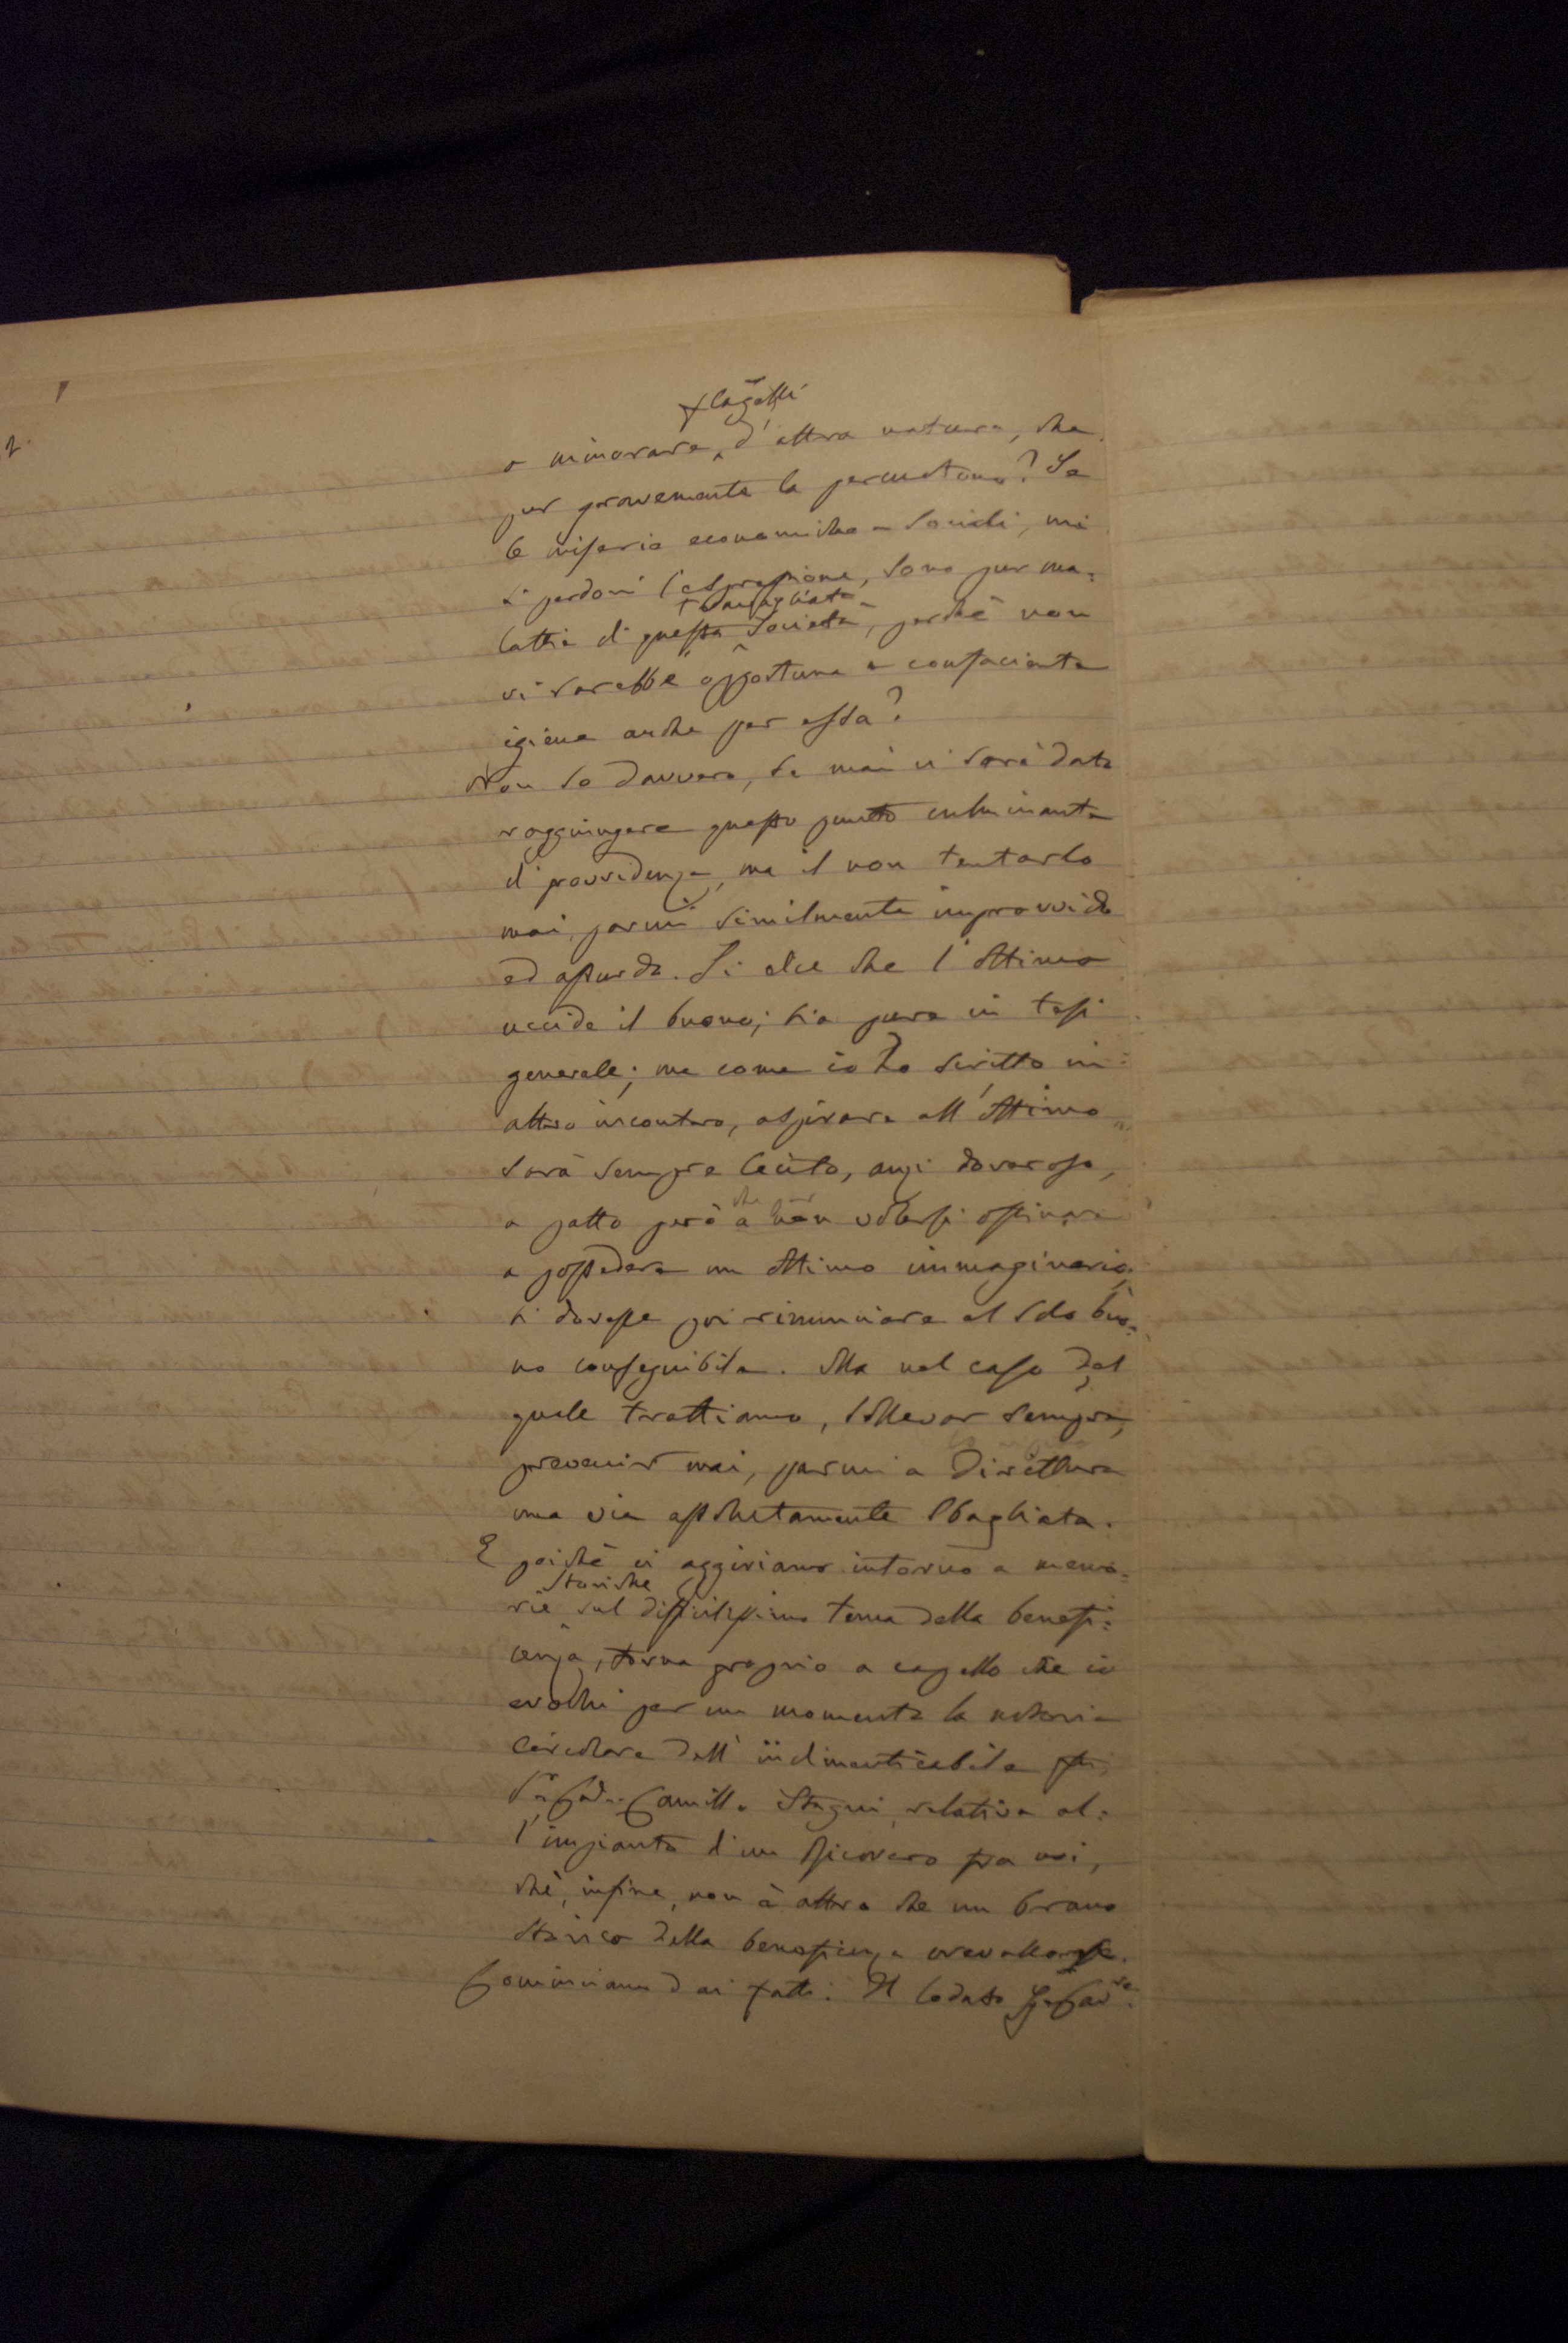 flagelli
o minorare, d'altra natura, che
pur gravemente la percuotono? Se
le miserie economiche-sociali, mi
si perdoni l'espressione, sono pur ma=
travagliata
lattie di questa Società, perchè non
vi sarebbe opportuna e confaciente
igiene anche per essa?
Non so davvero, se mai ci sarà dato
raggiungere questo punto culminante
di provvidenza, ma il non tentarlo
mai, parmi similmente improvvido
ed assurdo. Si dice che l'ottimo
uccide il buono; sia pure in tesi
generale; ma come io ho scritto in
altro incontro, aspirare all'ottimo
sarà sempre lecito, anzi doveroso,
che
a patto però a non volersi ostinare
a possedere un ottimo immaginario,
si dovesse poi rinunciare al solo buo=
no conseguibile. Ma nel caso del
quale trattiamo, sollevar sempre,
prevenir mai, parmi a dirittura
una via assolutamente sbagliata.
E poichè ci aggiriamo intorno a memo=
storiche
rie sul difficilissimo tema della benefi=
cenza, torna proprio a capello che io
evochi per un momento la notoria
circolare dell'indimenticabile
Camillo Stagni, relativa al=
l'impianto d'un Ricovero fra noi,
chè, infine, non è altro che un brano
storico della beneficenza crevalcorese.
Cominciamo dai fatti. Il lodato